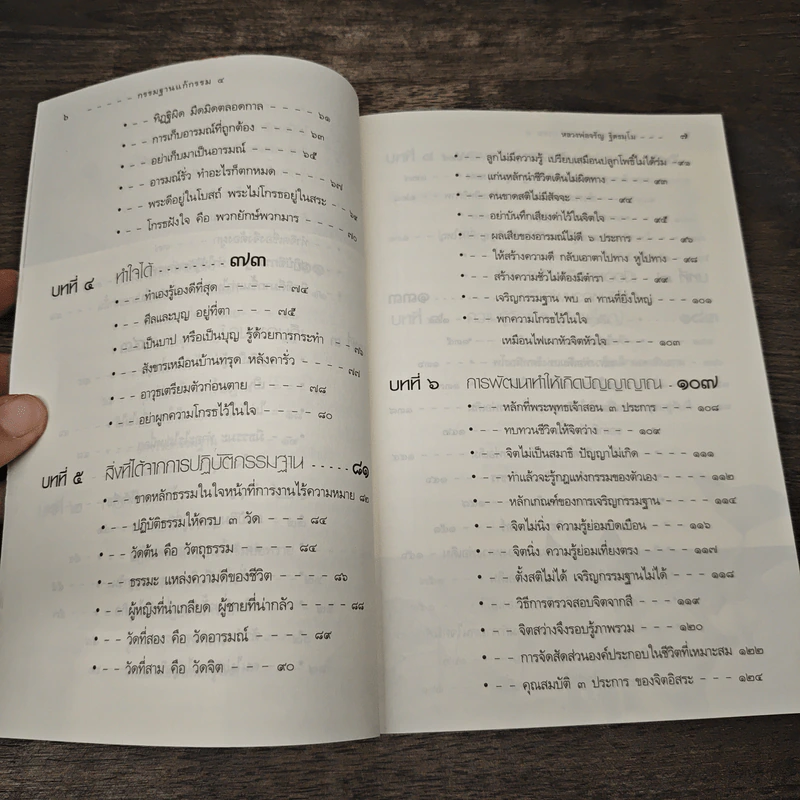 ๖ - - - - - กรรมฐานแก้กรรม ๔
• - - ทิฏฐิผิด มืดมิดตลอดกาล - - - ๖๑
• - - การเก็บอารมณ์ที่ถูกต้อง - - - ๖๓
• - - อย่าเก็บมาเป็นอารมณ์ - - - ๖๕
• - - อารมณ์รั่ว ทำอะไรก็ตกหมด - - - ๖๗
• - - พระดีอยู่ในโบสถ์ พระไม่โกรธอยู่ในสระ - -
• - - โกรธฝังใจ คือ พวกยักษ์พวกมาร - - - ๗๐
บทที่ ๔ ทำใจได้ - - - - - - - ๗๓
• - - ทำเองรู้เองดีที่สุด - - - - ๗๔
• - - ศีลและบุญ อยู่ที่ตา - - - - ๗๕
• - - เป็นบาป หรือเป็นบุญ รู้ด้วยการกระทำ - - ๗๖
• - - สังขารเหมือนบ้านทรุด หลังคารั่ว - - - ๗๗
• - - อาวุธเตรียมตัวก่อนตาย - - - - ๗๘
• - - อย่าผูกความโกรธไว้ในใจ - - - - ๘๐
บทที่ ๕ สิ่งที่ได้จากการปฏิบัติกรรมฐาน - - - - - ๘๑
• - - ขาดหลักธรรมในใจหน้าที่การงานไร้ความหมาย ๘๒
• - - ปฏิบัติธรรมให้ครบ ๓ วัด - - - - ๘๔
• - - วัดต้น คือ วัตถุธรรม - - - - ๘๔
• - - ธรรมะ แหล่งความดีของชีวิต - - - - ๘๖
• - - ผู้หญิงที่น่าเกลียด ผู้ชายที่น่ากลัว - - - - ๘๘
• - - วัดที่สอง คือ วัดอารมณ์ - - - - ๘๙
• - - วัดที่สาม คือ วัดจิต - - - - ๙๐
หลวงพ่อจรัญ ฐิตธมฺโม - - - ๗
• - - ลูกไม่มีความรู้ เปรียบเสมือนปลูกโพธิ์ไม่ได้ร่ม - - ๙๑
• - - แก่นหลักนำชีวิตเดินไม่มีผิดทาง - - - ๙๓
• - - คนขาดสติไม่มีสัจจะ - - - - ๙๔
• - - อย่าบันทึกเสียงด่าไว้ในจิตใจ - - - - ๙๕
• - - ผลเสียของอารมณ์ไม่ดี ๖ ประการ - - - - ๙๖
• - - ให้สร้างความดี กลับเอาตาไปทาง หูไปทาง - - ๙๘
• - - สร้างความชั่วไม่ต้องมีตำรา - - - - ๙๙
• - - เจริญกรรมฐาน พบ ๓ ทานที่ยิ่งใหญ่ - - - ๑๐๑
• - - พกความโกรธไว้ในใจ
เหมือนไฟเผาหัวจิตหัวใจ - - - - ๑๐๓
บทที่ ๖ การพัฒนาทำให้เกิดปัญญาญาณ - ๑๐๗
• - - หลักที่พระพุทธเจ้าสอน ๓ ประการ - - - ๑๐๘
• - - ทบทวนชีวิตให้จิตว่าง - - - - ๑๐๙
• - - จิตไม่เป็นสมาธิ ปัญญาไม่เกิด - - - - ๑๑๑
• - - ทำแล้วจะรู้กฎแห่งกรรมของตัวเอง - - - - ๑๑๒
• - - หลักเกณฑ์ของการเจริญกรรมฐาน - - - - ๑๑๔
• - - จิตไม่นิ่ง ความรู้ย่อมบิดเบือน - - - - ๑๑๖
• - - จิตนิ่ง ความรู้ย่อมเที่ยงตรง - - - - ๑๑๗
• - - ตั้งสติไม่ได้ เจริญกรรมฐานไม่ได้ - - - - ๑๑๘
• - - วิธีการตรวจสอบจิตจากสี - - - - ๑๑๙
• - - จิตสว่างจึงรอบรู้ภาพรวม - - - - ๑๒๐
• - - การจัดสัดส่วนองค์ประกอบในชีวิตที่เหมาะสม ๑๒๒
• - - คุณสมบัติ ๓ ประการ ของจิตอิสระ - - - - ๑๒๔